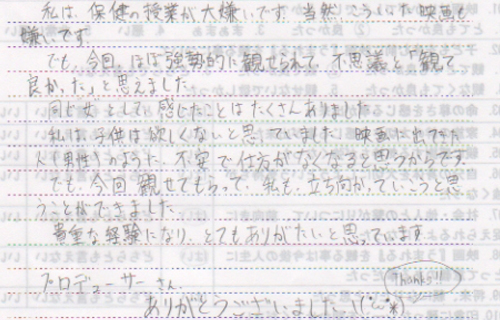 私は、保健の授業が大嫌いです。当然、こういった映画も
嫌いです。
でも、今回、ほぼ強勢的に観せられて、不思議と「観て
良かった」と思えました。
同じ女として感じたことはたくさんありました。
私は、子供は欲しくないと思っていました。映画に出てた
人(男性)のように、不安で仕方がなくなると思うからです。
でも、今回観せてもらって、私も、立ち向かっていこうと思
うことができました。
貴重な経験になり、とてもありがたいと思っています。
プロデューサーさん、
Thanks!!!
ありがとうございました